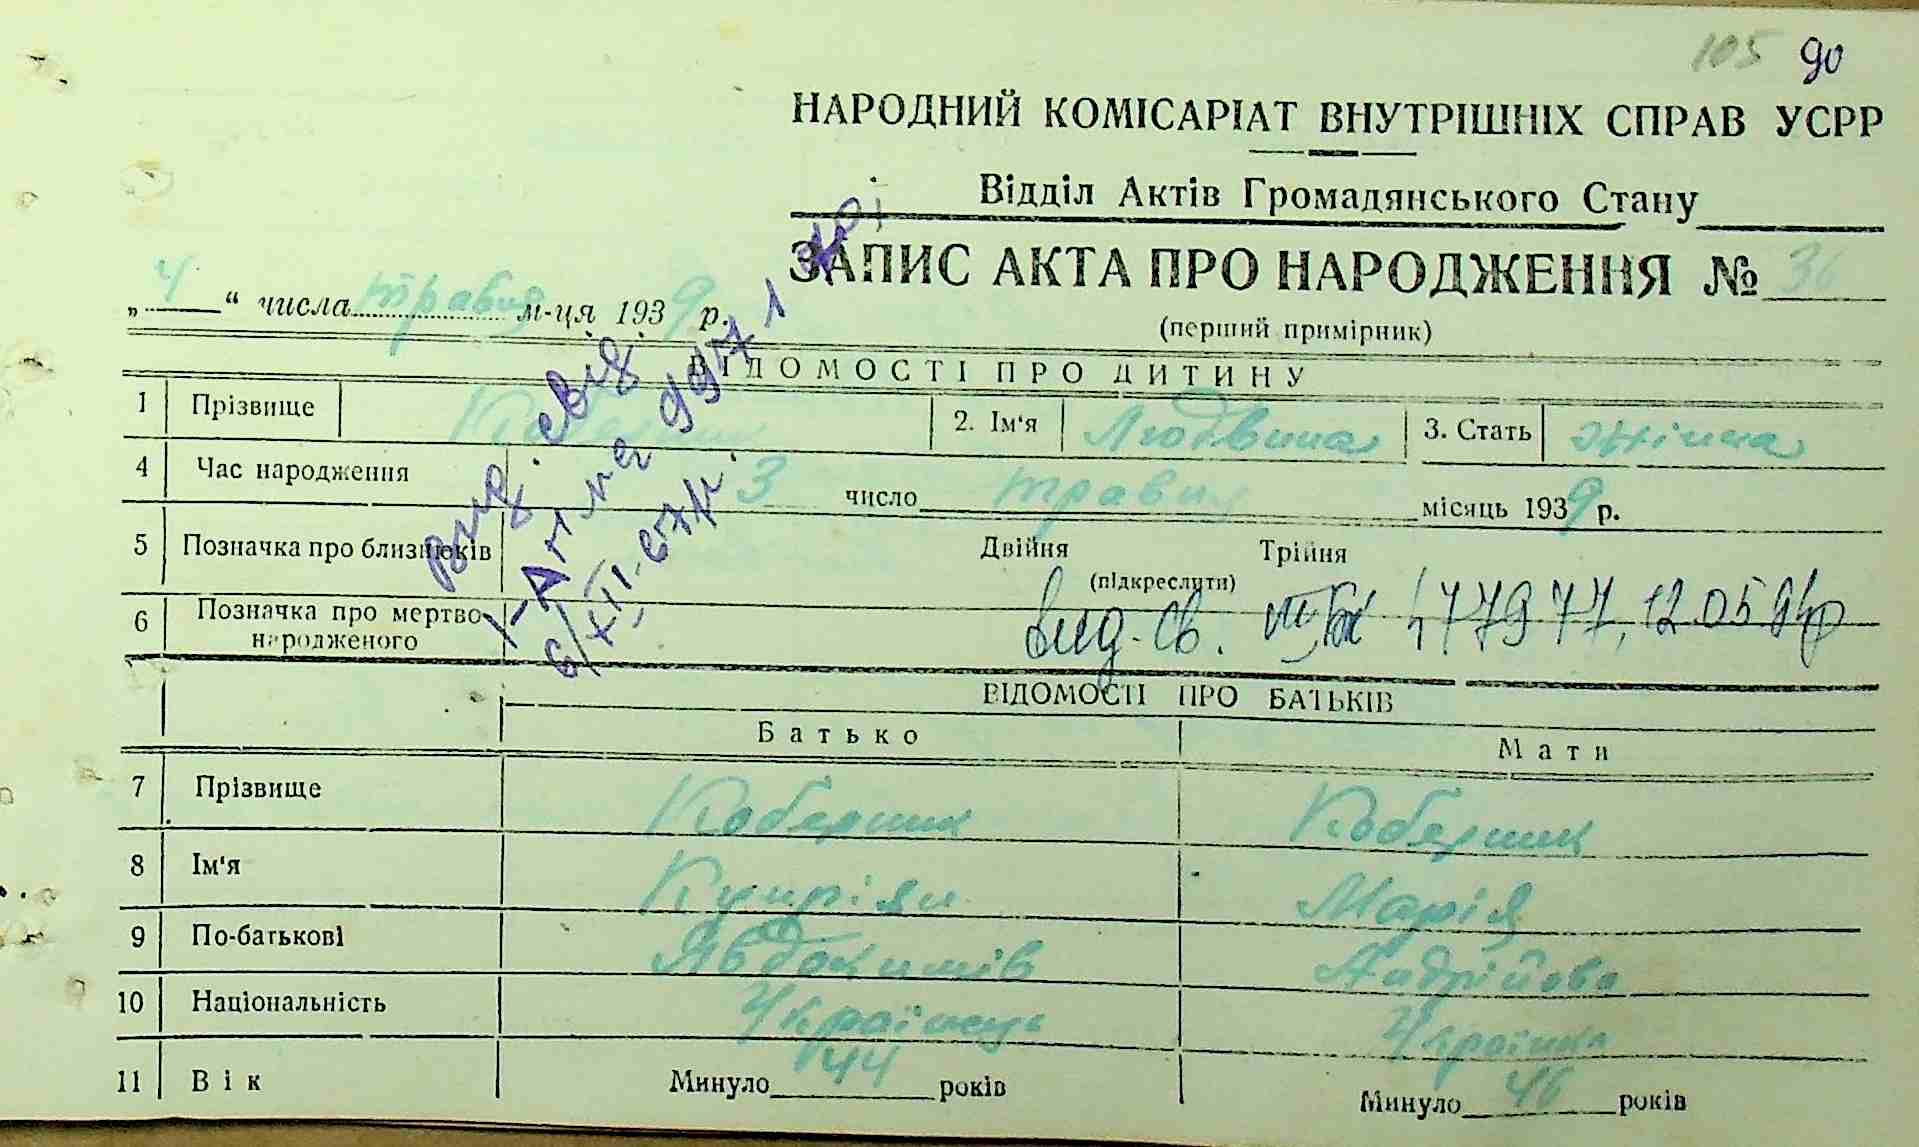 105 90
НАРОДНИЙ КОМІСАРІАТ ВНУТРІШНІХ СПРАВ УСРР
Відділ Актів Громадянського Стану
ЗАПИС АКТА ПРО НАРОДЖЕННЯ № 36
„ 4 “ числа травня м-ця 1939 р.
(перший примірник)
ВІДОМОСТІ ПРО ДИТИНУ
1 Прізвище 2. Ім‘я Людвина 3. Стать жіноча
4 Час народження 3 число травня місяць 1939 р.
5 Позначка про близнюків Двійня Трійня
(підкреслити)
6 Позначка про мертвонародженого
вид. свід.
І-АМ №
6/XII-67р.
вид. св. 477977, 12.05.94р
ВІДОМОСТІ ПРО БАТЬКІВ
Батько Мати
7 Прізвище Коберник Коберник
8 Ім‘я Купріян Марія
9 По-батькові Явдокимів Андрійова
10 Національність Українець Українка
11 Вік Минуло 44 років Минуло 46 років